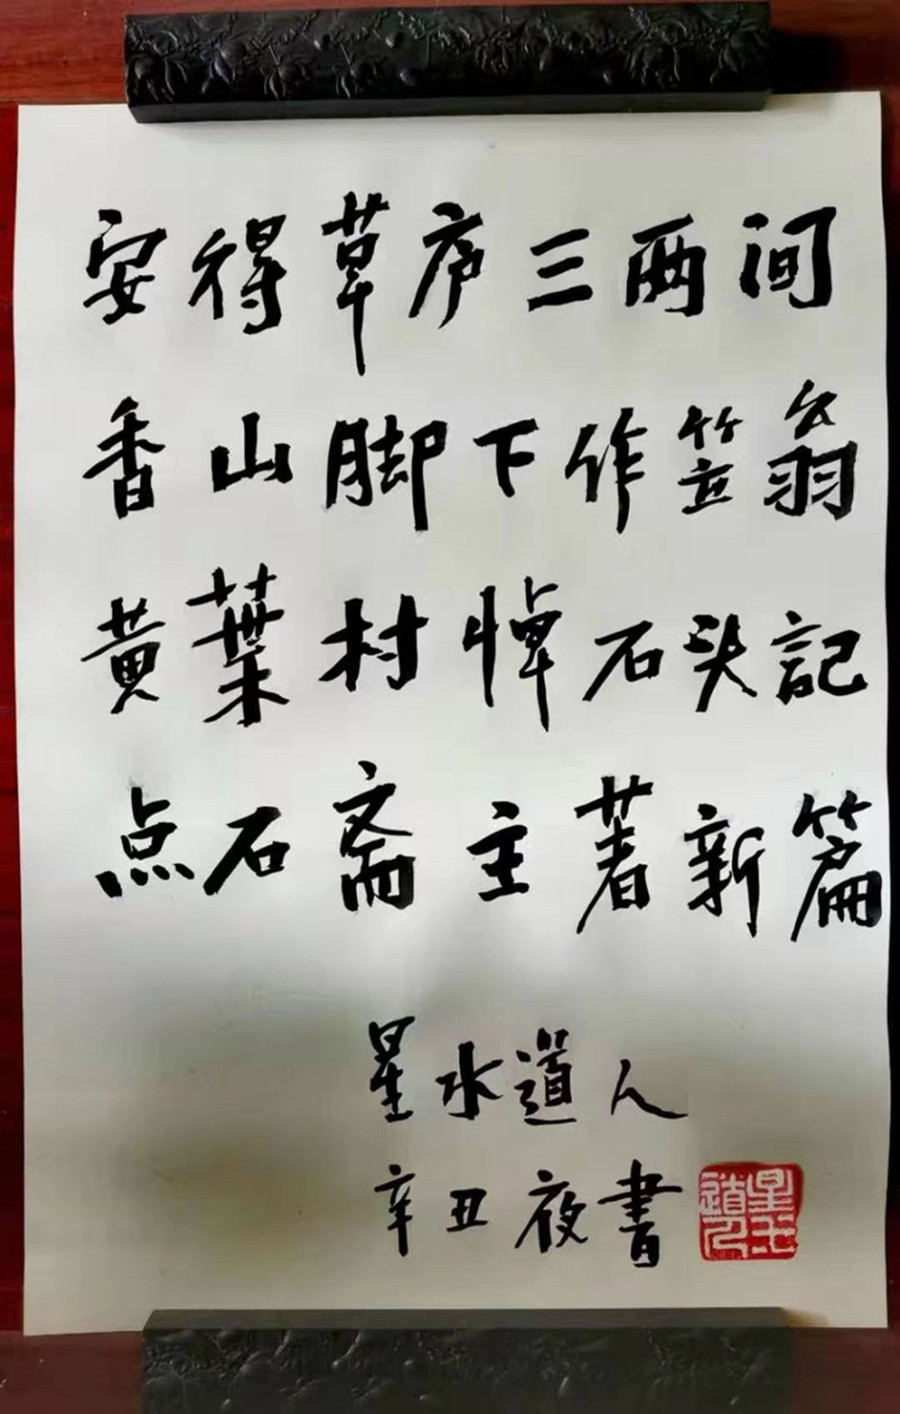 安得草庐三两间
香山脚下作笠翁
黄葉村悼石头記
点石斋主著新篇
星水道人
辛丑夜書